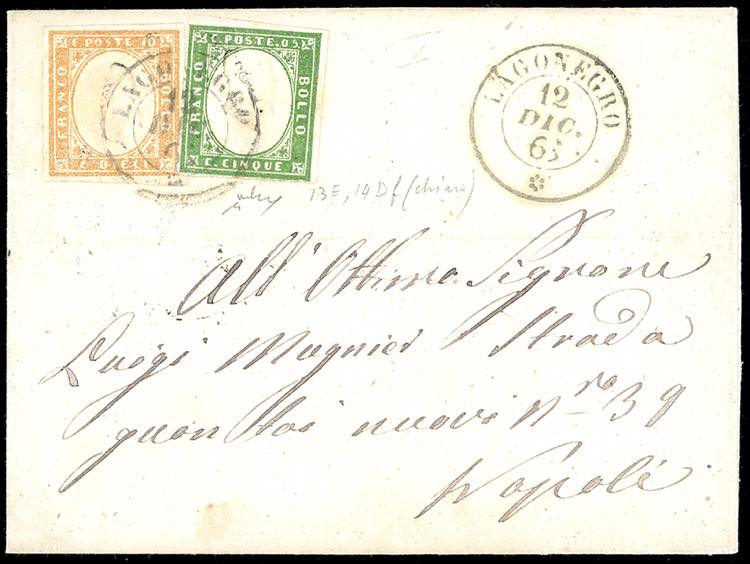 C. POSTE 10
FRANCO
C. DIECI
C. POSTE. 05
FRANCO
BOLLO
C. CINQUE
LAGONEGRO
12
DIC.
63
13E, 14Df (chiaro)
All' Ottimo Signore
Luigi Magnier Strada
guantai nuovi Nro 39
Napoli